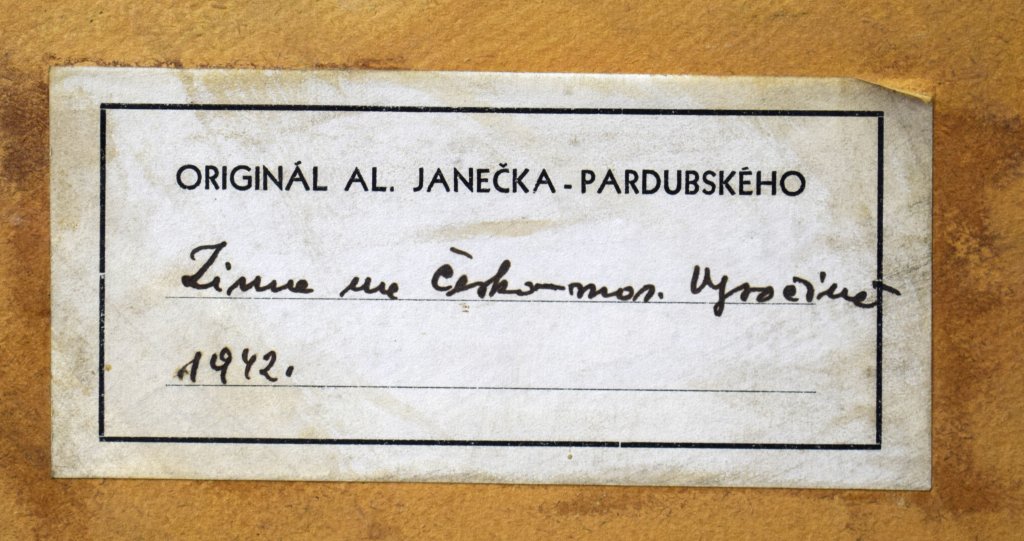 ORIGINÁL AL. JANEČKA-PARDUBSKÉHO
Zima na Česko-mor. Vysočině
1942.